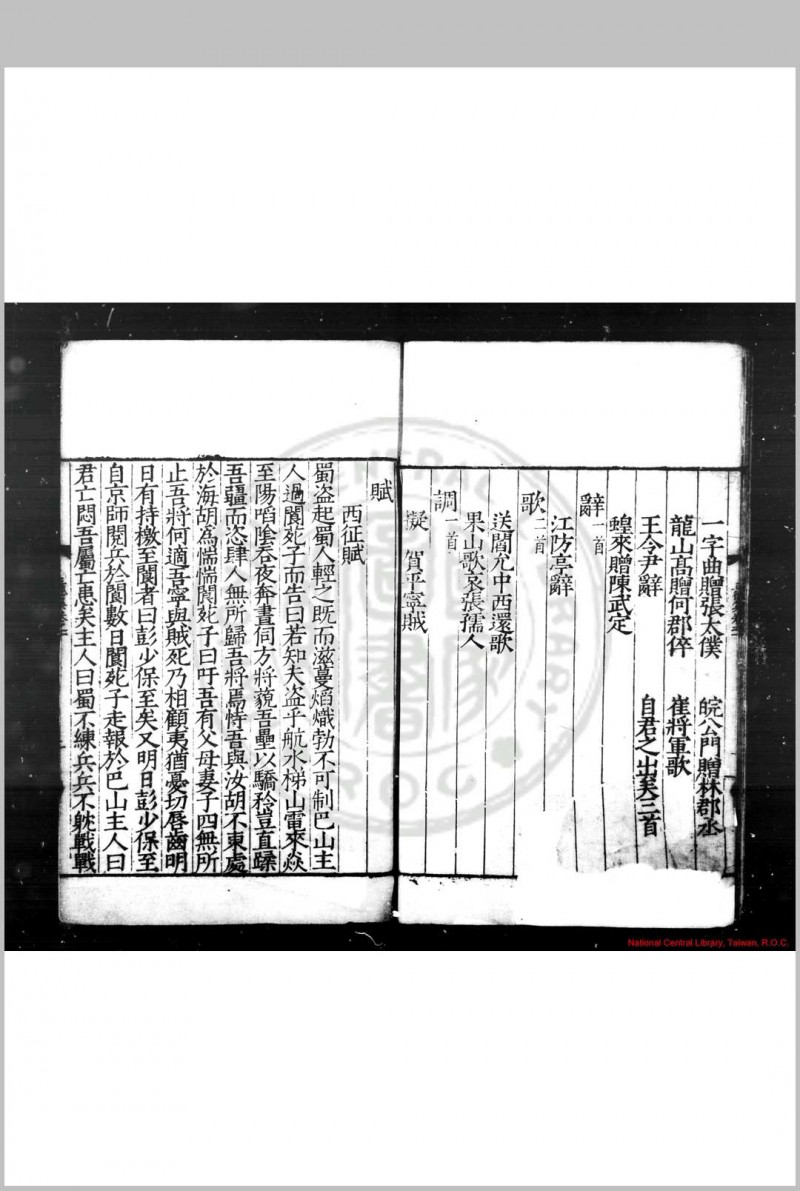 一字曲贈張太僕　皖公門贈林郡丞
龍山高贈何郡倅　崔將軍歌
王令尹辭　自君之出矣三首
蝗來贈陳武定
辭一首
江防亭辭
歌二首
送閻允中西還歌
果山歌哀張孺人
調一首
擬賀平寧賊
賦
西征賦
蜀盗起蜀人輕之既而滋蔓焰熾勃不可制巴山主
人過閬死子而告曰若知夫盗乎航水梯山電來焱
至陽啗陰吞夜奔晝伺方將藐吾壘以驕矜豈直蹂
吾疆而恣肆人無所歸吾將焉恃吾與汝胡不東處
於海胡為惴惴閬死子曰吁吾有父母妻子四無所
止吾將何適吾寧與賊死乃相顧夷猶憂切唇齒明
日有持檄至閬者曰彭少保至矣又明日彭少保至
自京師閱兵於閬數日閬死子走報於巴山主人曰
君亡悶吾屬亡患矣主人曰蜀不練兵兵不躭戰戰
National Central Library, Taiwan, R.O.C.